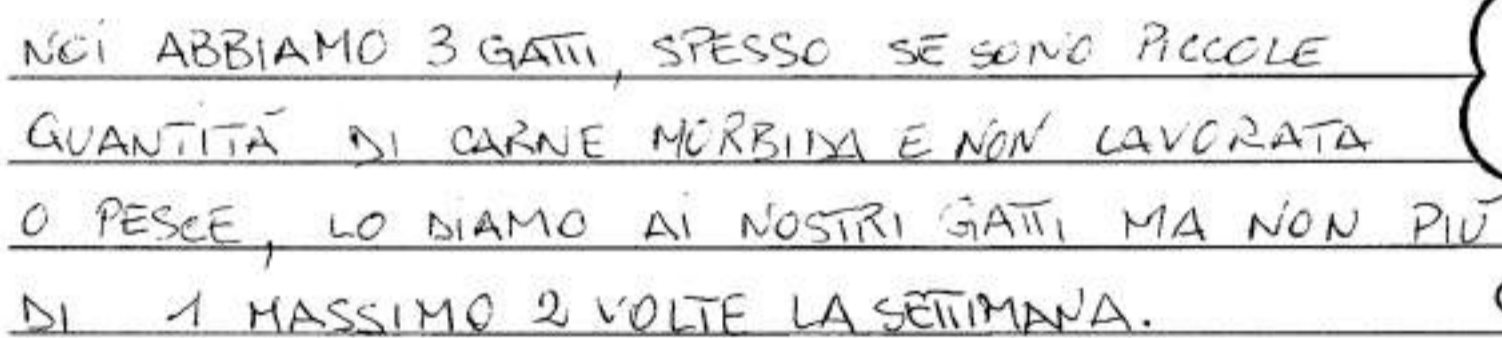 NOI ABBIAMO 3 GATTI, SPESSO SE SONO PICCOLE
QUANTITÀ DI CARNE MORBIDA E NON LAVORATA
O PESCE, LO DIAMO AI NOSTRI GATTI MA NON PIÙ
DI 1 MASSIMO 2 VOLTE LA SETTIMANA.